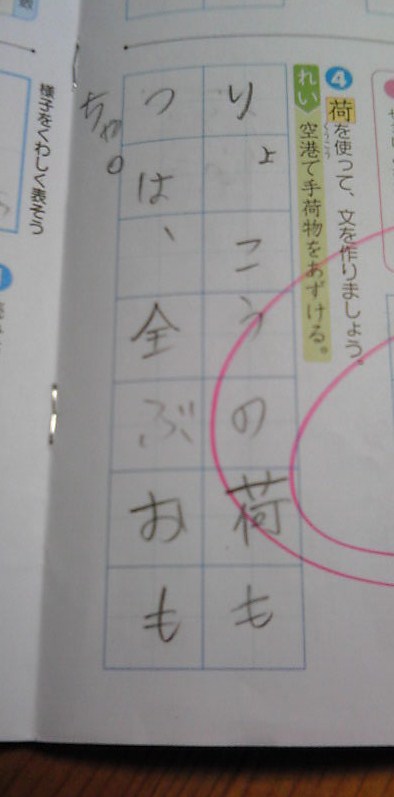 ④荷を使って、文を作りましょう。
くうこう
れい 空港で手荷物をあずける。
りょこうの荷も
つは、全ぶおも
ちゃ。
様子をくわしく表そう